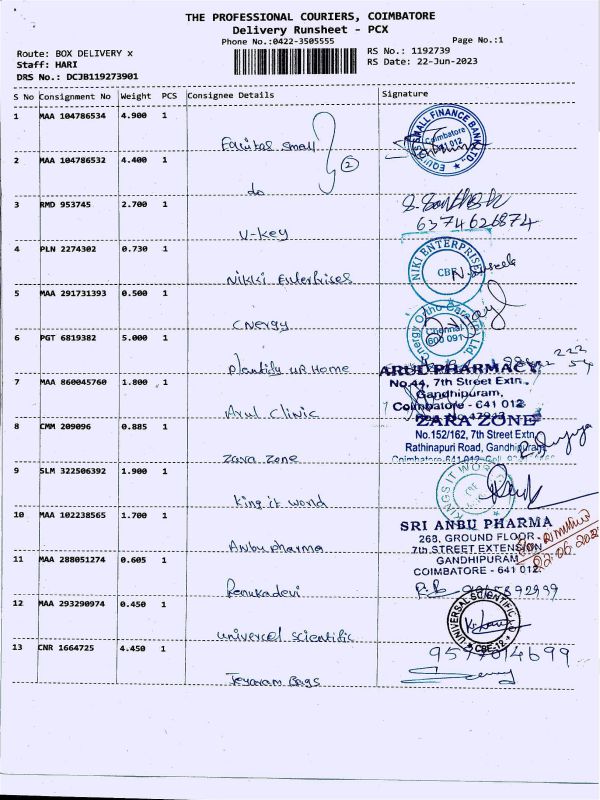 THE PROFESSIONAL COURIERS, COIMBATORE
Delivery Runsheet - PCX
Phone No.:0422-3505555
Page No.:1
Route: BOX DELIVERY x
RS No.: 1192739
Staff: HARI
RS Date: 22-Jun-2023
DRS No.: DCJB119273901
S No Consignment No Weight PCS Consignee Details Signature
1 MAA 104786534 4.900 1
Equitas small
EQUITAS SMALL FINANCE BANK LTD.
Coimbatore
641 012
2 MAA 104786532 4.400 1
2
do
3 RMD 953745 2.700 1
6374626874
V-key
4 PLN 2274302 0.730 1
NIKI ENTERPRISES
CBE
Nikki Enterprises
5 MAA 291731393 0.500 1
Cnergy
Cnergy Ortho Care P. Ltd.
Chennai
600 091
6 PGT 6819382 5.000 1
Plantify UR Home
7 MAA 860045760 1.800 1
ARUL PHARMACY
No.44, 7th Street Extn.,
Gandhipuram,
Coimbatore - 641 012.
Arul Clinic
8 CMM 209096 0.885 1
ZARA ZONE
No.152/162, 7th Street Extn,
Rathinapuri Road, Gandhipuram
Zara Zone
9 SLM 322506392 1.900 1
KINGS IT WORLD
King it world
10 MAA 102238565 1.700 1
SRI ANBU PHARMA
268, GROUND FLOOR
7th STREET EXTENSION
GANDHIPURAM
COIMBATORE - 641 012.
Anbu pharma
11 MAA 288051274 0.605 1
Renukadevi
12 MAA 293290974 0.450 1
UNIVERSAL SCIENTIFIC
CBE-12
Univercel Scientific
13 CNR 1664725 4.450 1
Jeyaram Bags